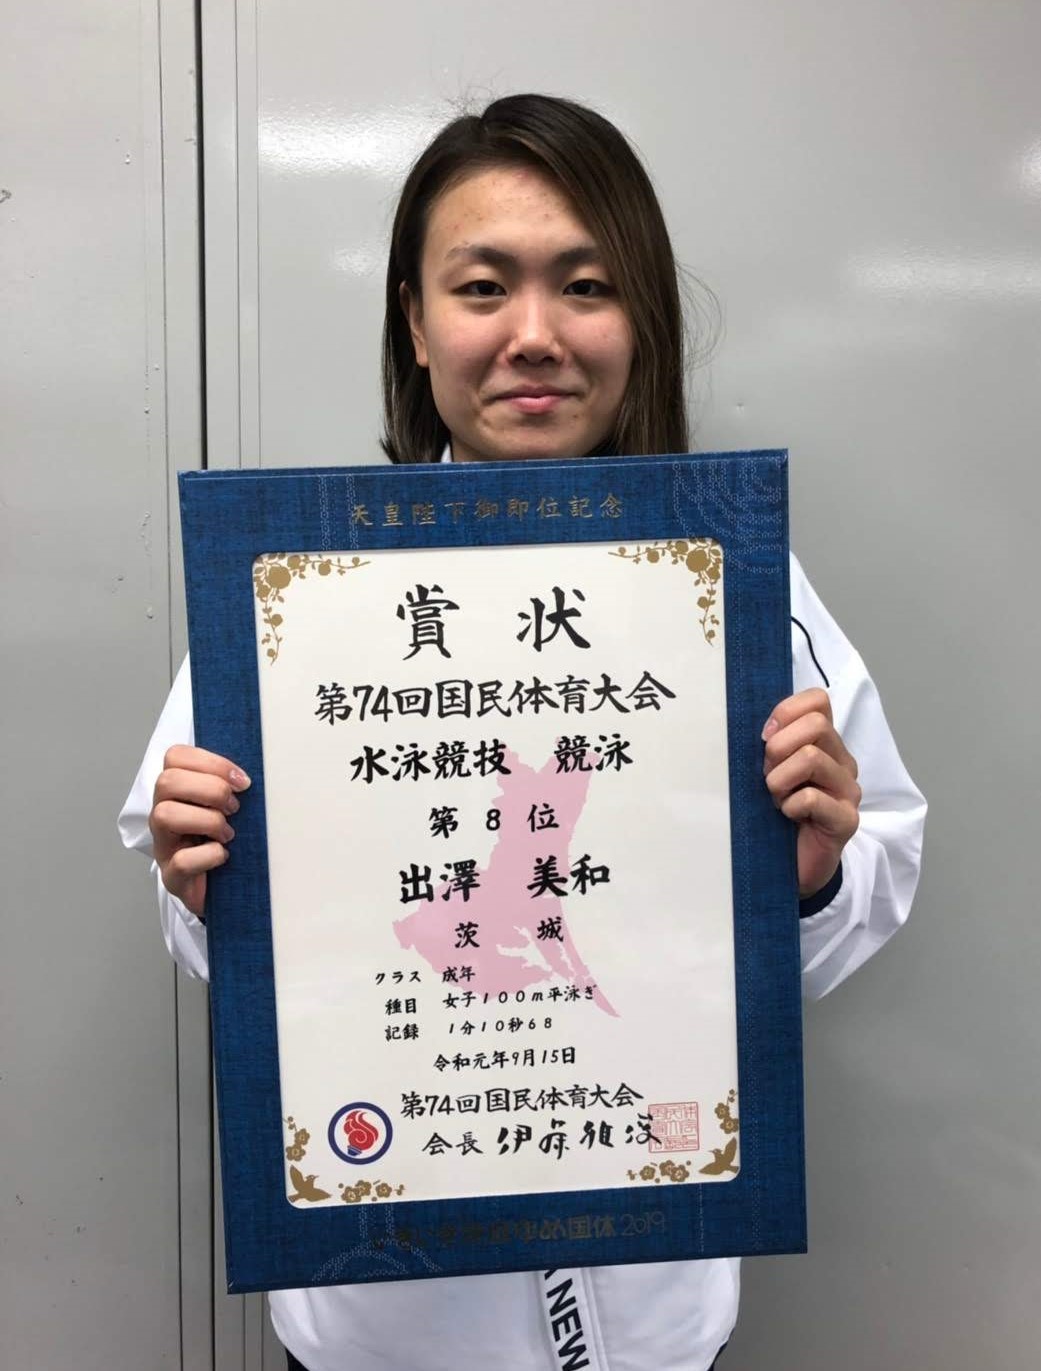 天皇陛下御即位記念
賞 状
第74回国民体育大会
水泳競技 競泳
第 8 位
出澤 美和
茨 城
クラス 成年
種目 女子100m平泳ぎ
記録 1分10秒68
令和元年9月15日
第74回国民体育大会
会長 伊藤雅俊
ゆめ国体2019
NEW